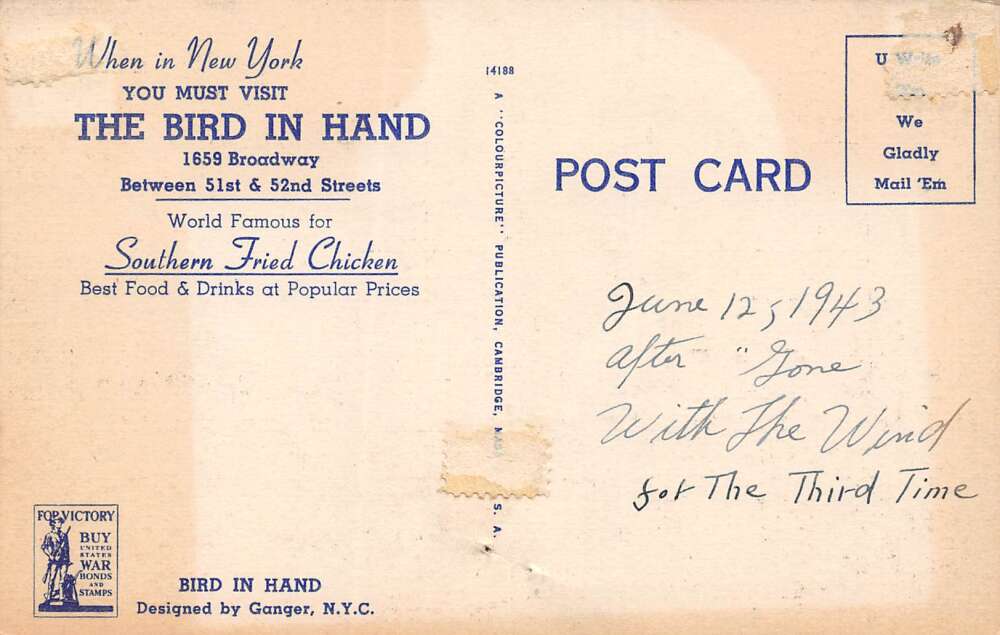 When in New York
YOU MUST VISIT
THE BIRD IN HAND
1659 Broadway
Between 51st & 52nd Streets
World Famous for
Southern Fried Chicken
Best Food & Drinks at Popular Prices
FOR VICTORY
BUY
UNITED
STATES
WAR
BONDS
AND
STAMPS
BIRD IN HAND
Designed by Ganger, N.Y.C.
14188
A "COLOURPICTURE" PUBLICATION, CAMBRIDGE, MASS U. S. A.
POST CARD
U Write
We
Gladly
Mail 'Em
June 12, 1943
after "Gone
With The Wind
for The Third Time